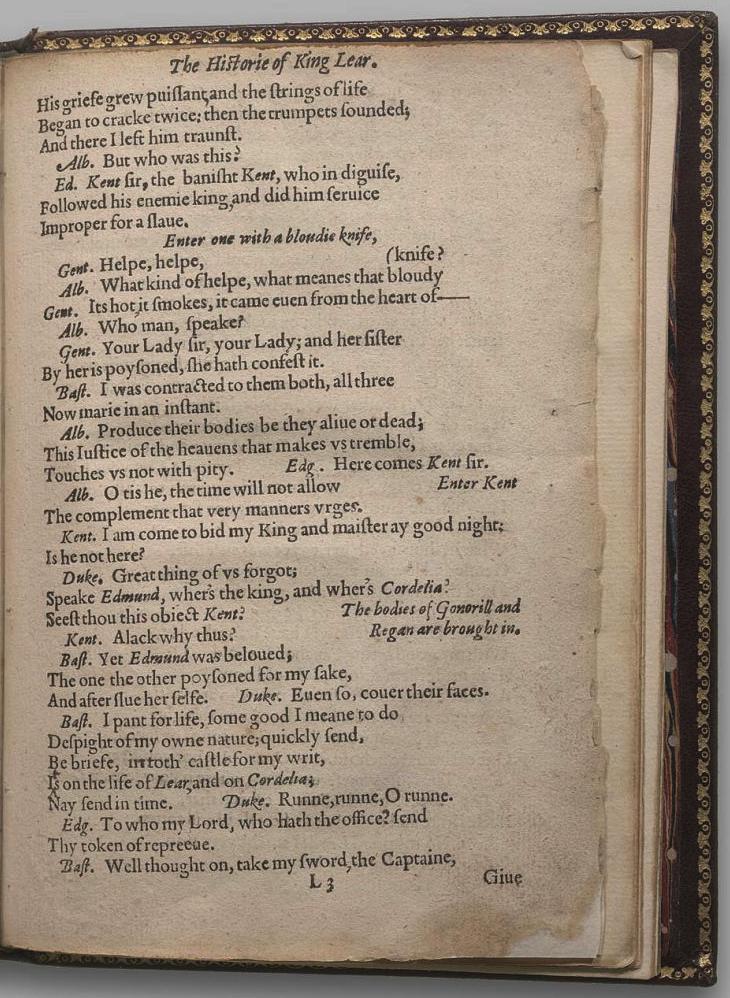 The Hiſtorie of King Lear.
His griefe grew puiſſant, and the ſtrings of life
Began to cracke twice; then the trumpets ſounded;
And there I left him traunſt.
Alb. But who was this?
Ed. Kent ſir, the baniſht Kent, who in diguiſe,
Followed his enemie king, and did him ſeruice
Improper for a ſlaue.
Enter one with a bloudie knife,
Gent. Helpe, helpe, (knife?
Alb. What kind of helpe, what meanes that bloudy
Gent. Its hot, it ſmokes, it came euen from the heart of——
Alb. Who man, ſpeake?
Gent. Your Lady ſir, your Lady; and her ſiſter
By her is poyſoned, ſhe hath confeſt it.
Baſt. I was contracted to them both, all three
Now marie in an inſtant.
Alb. Produce their bodies be they aliue or dead;
This Iuſtice of the heauens that makes vs tremble,
Touches vs not with pity. Edg. Here comes Kent ſir.
Alb. O tis he, the time will not allow Enter Kent
The complement that very manners vrges.
Kent. I am come to bid my King and maiſter ay good night;
Is he not here?
Duke. Great thing of vs forgot;
Speake Edmund, wher's the king, and wher's Cordelia?
Seeſt thou this obiect Kent? The bodies of Gonorill and
Kent. Alack why thus? Regan are brought in.
Baſt. Yet Edmund was beloued;
The one the other poyſoned for my ſake,
And after ſlue her ſelfe. Duke. Euen ſo, couer their faces.
Baſt. I pant for life, ſome good I meane to do
Deſpight of my owne nature; quickly ſend,
Be briefe, int oth' caſtle for my writ,
Is on the life of Lear, and on Cordelia;
Nay ſend in time. Duke. Runne, runne, O runne.
Edg. To who my Lord, who hath the office? ſend
Thy token of repreeue.
Baſt. Well thought on, take my ſword, the Captaine,
L 3 Giue